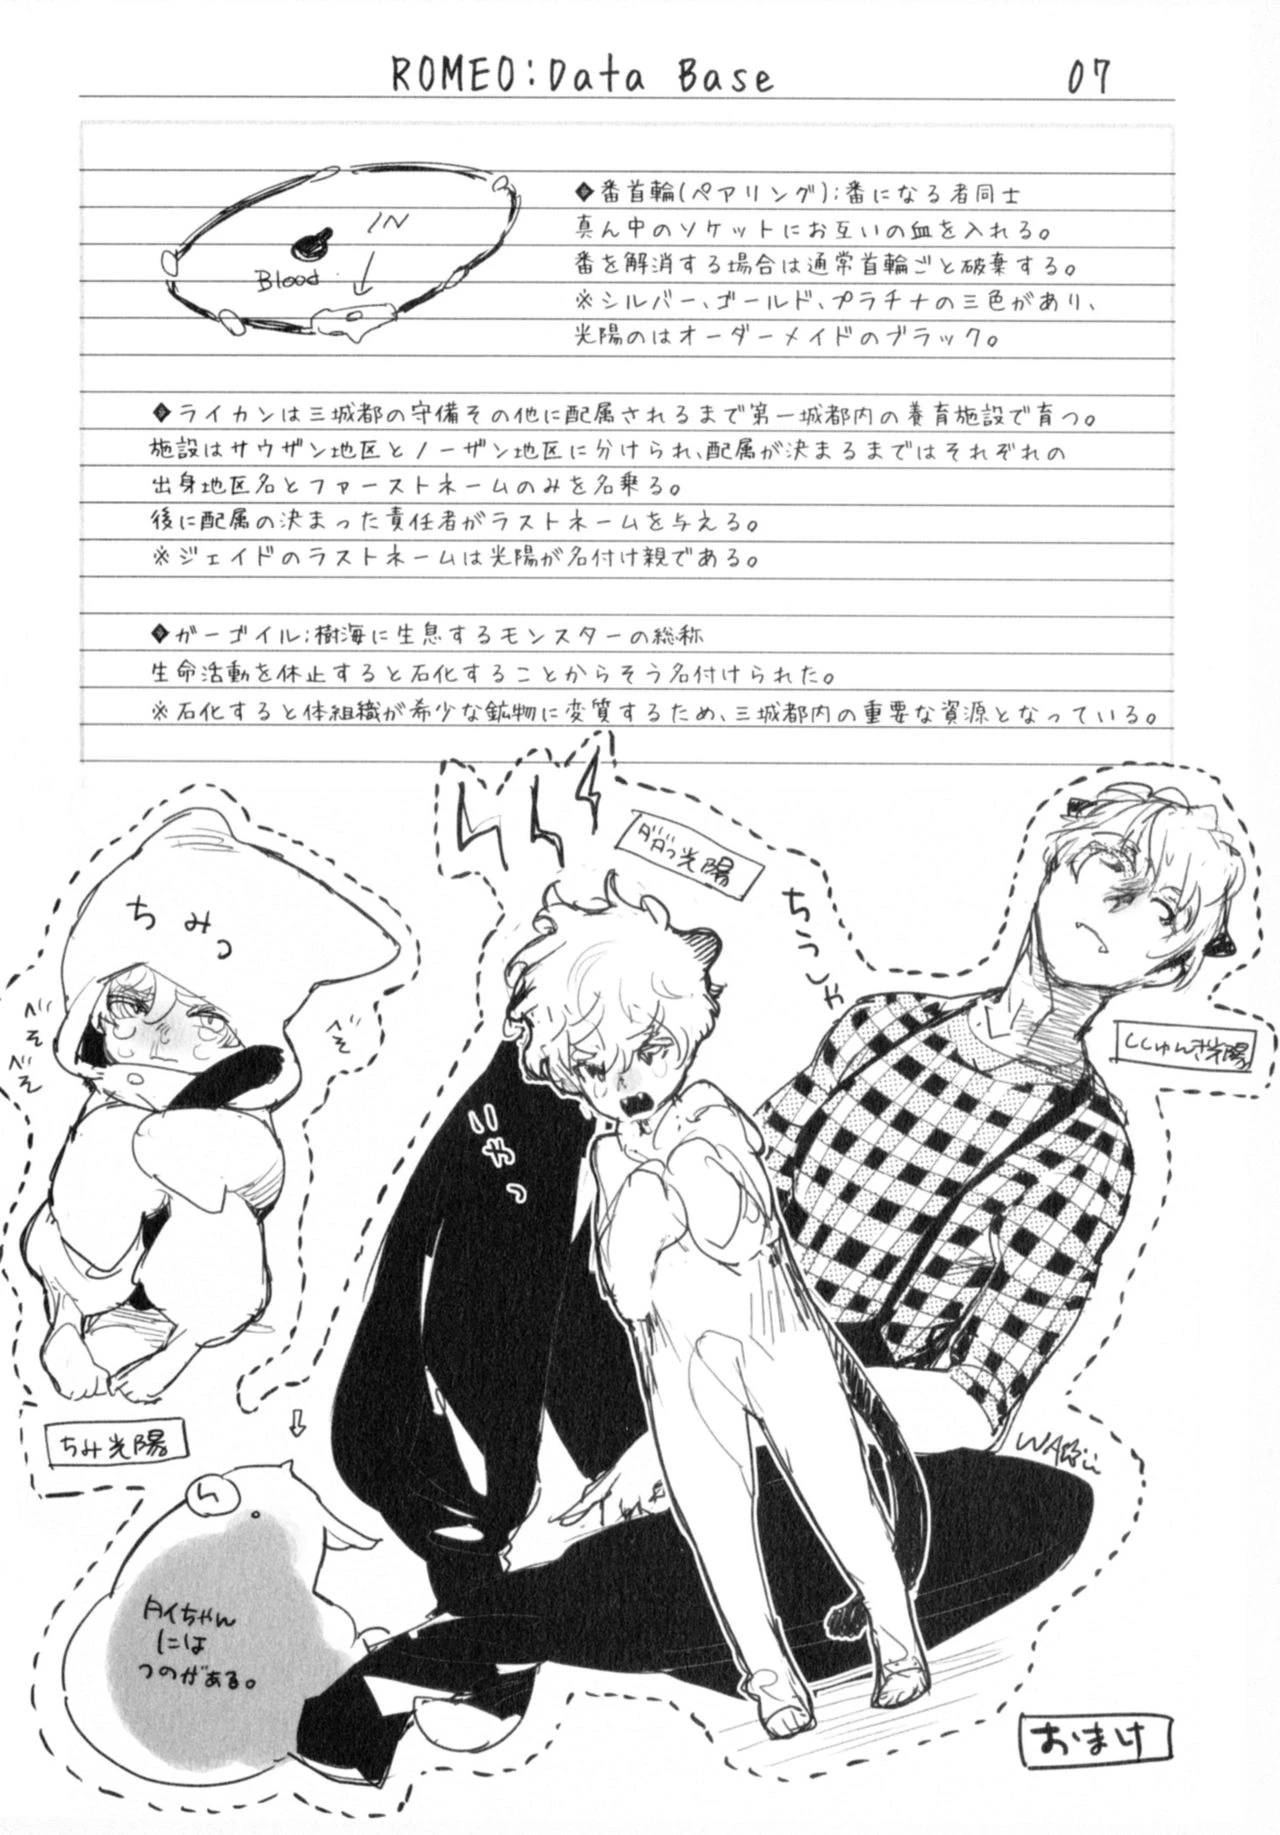 ROMEO:Data Base
07
IN
Blood
◆番首輪(ペアリング):番になる者同士
真ん中のソケットにお互いの血を入れる。
番を解消する場合は通常首輪ごと破棄する。
※シルバー、ゴールド、プラチナの三色があり、
光陽のはオーダーメイドのブラック。
◆ライカンは三城都の守備その他に配属されるまで第一城都内の養育施設で育つ。
施設はサウザン地区とノーザン地区に分けられ、配属が決まるまではそれぞれの
出身地区名とファーストネームのみを名乗る。
後に配属の決まった責任者がラストネームを与える。
※ジェイドのラストネームは光陽が名付け親である。
◆ガーゴイル:樹海に生息するモンスターの総称
生命活動を休止すると石化することからそう名付けられた。
※石化すると体組織が希少な鉱物に変質するため、三城都内の重要な資源となっている。
ダダっ光陽
ちみっ
ちうしゃ
ししゅんき光陽
べそ
べそ
べそ
いやっ
ちみ光陽
タイちゃん
には
つのがある。
おまけ